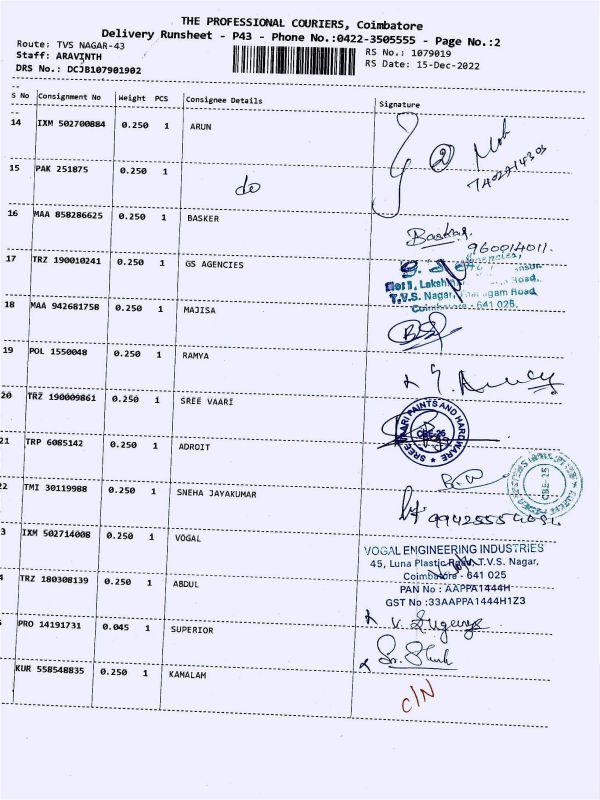 THE PROFESSIONAL COURIERS, Coimbatore
Delivery Runsheet - P43 - Phone No.:0422-3505555 - Page No.:2
Route: TVS NAGAR-43
Staff: ARAVINTH
DRS No.: DCJB107901902
RS No.: 1079019
RS Date: 15-Dec-2022
S No Consignment No Weight PCS Consignee Details Signature
14 IXM 502700884 0.250 1 ARUN
15 PAK 251875 0.250 1 do
16 MAA 858286625 0.250 1 BASKER
Baskar.
960014011.
17 TRZ 190010241 0.250 1 GS AGENCIES
T.V.S. Nagar, Road,
Coimbatore - 641 025.
18 MAA 942681758 0.250 1 MAJISA
19 POL 1550048 0.250 1 RAMYA
20 TRZ 190009861 0.250 1 SREE VAARI
SREE VAARI PAINTS AND HARDWARE
CBE-25
21 TRP 6085142 0.250 1 ADROIT
CBE-25
22 TMI 30119988 0.250 1 SNEHA JAYAKUMAR
3 IXM 502714008 0.250 1 VOGAL
VOGAL ENGINEERING INDUSTRIES
45, Luna Plastic Road, T.V.S. Nagar,
Coimbatore - 641 025
PAN No : AAPPA1444H
GST No :33AAPPA1444H1Z3
4 TRZ 180308139 0.250 1 ABDUL
PRO 14191731 0.045 1 SUPERIOR
KUR 558548835 0.250 1 KAMALAM
C/N